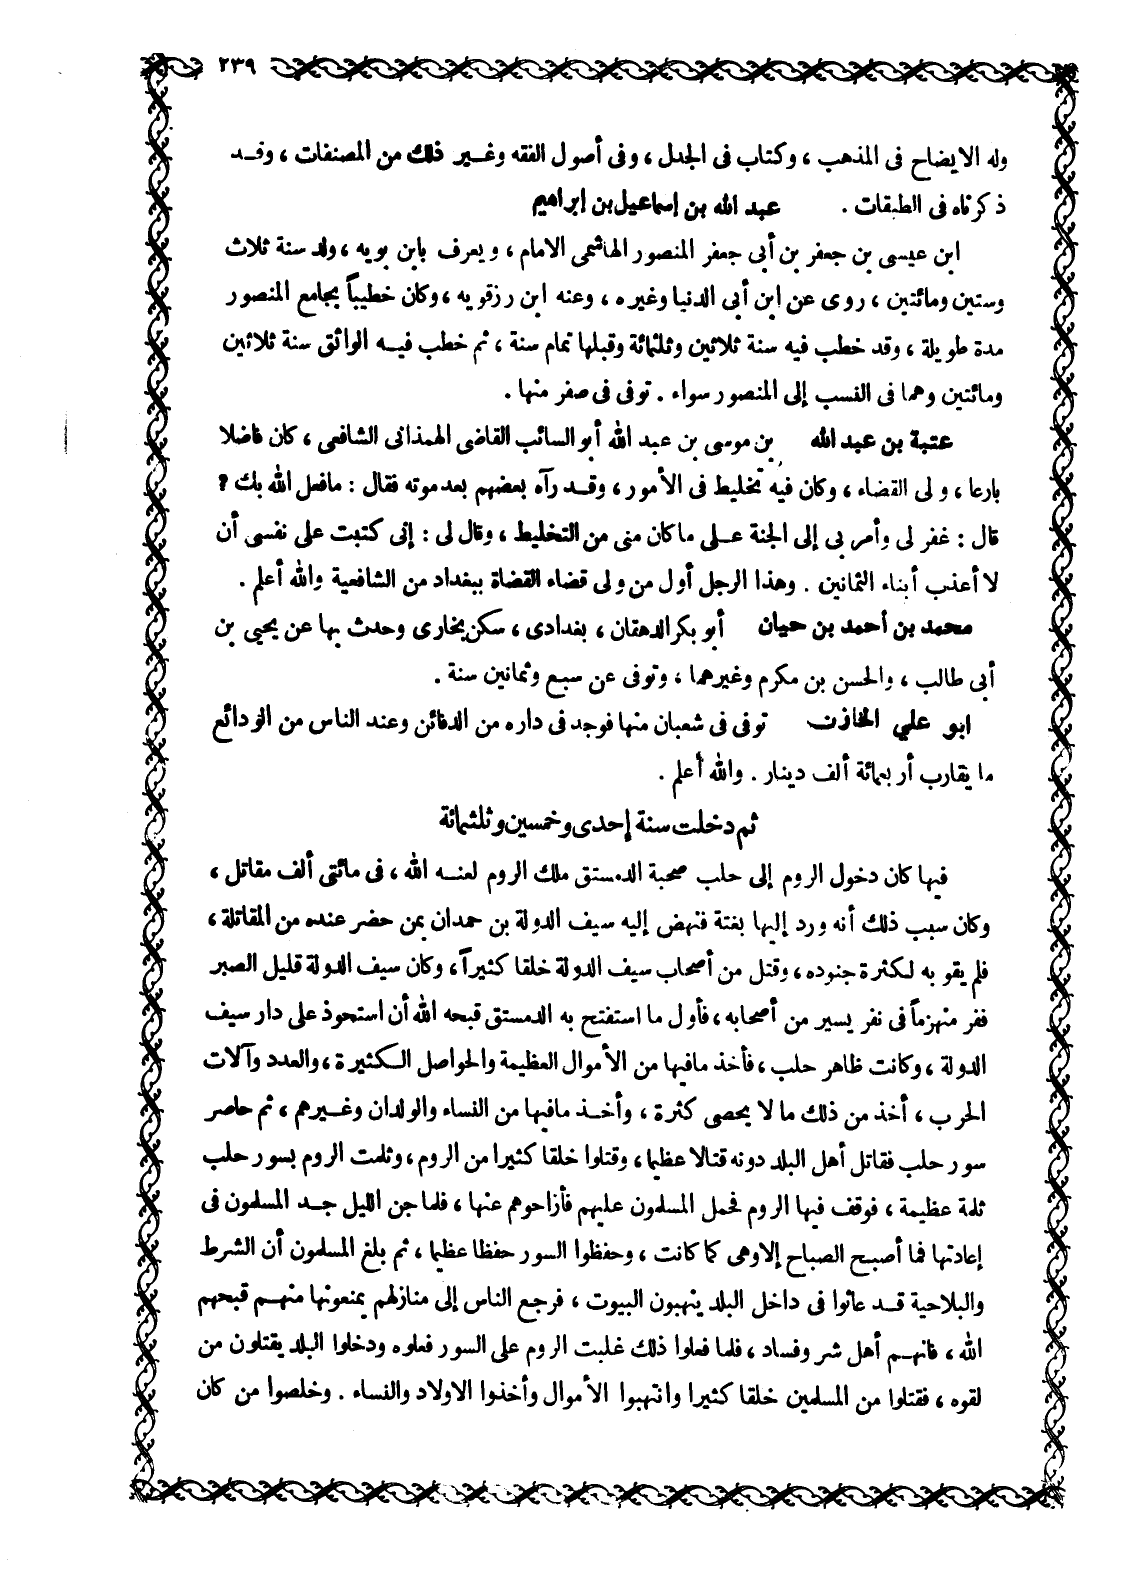 ٢٣٩
وله الايضاح فى المذهب ، وكتاب فى الجدل ، وفى أصول الفقه وغير ذلك من المصنفات ، وقد
ذكرناه فى الطبقات . عبد الله بن إسماعيل بن إبراهيم
ابن عيسى بن جعفر بن أبى جعفر المنصور الهاشمى الامام ، ويعرف بابن بويه ، ولد سنة ثلاث
وستين ومائتين ، روى عن ابن أبى الدنيا وغيره ، وعنه ابن رزقويه ، وكان خطيباً بجامع المنصور
مدة طويلة ، وقد خطب فيه سنة ثلاثين وثلثمائة وقبلها تمام سنة ، ثم خطب فيه الواثق سنة ثلاثين
ومائتين وهما فى النسب إلى المنصور سواء . توفى فى صفر منها .
عتبة بن عبد الله بن موسى بن عبد الله أبو السائب القاضى الهمذانى الشافعى ، كان فاضلا
بارعا ، ولى القضاء ، وكان فيه تخليط فى الأمور ، وقد رآه بعضهم بعد موته فقال : مافعل الله بك ؟
قال : غفر لى وأمر بى إلى الجنة على ما كان منى من التخليط ، وقال لى : إنى كتبت على نفسى أن
لا أعذب أبناء الثمانين . وهذا الرجل أول من ولى قضاء القضاة ببغداد من الشافعية والله أعلم .
محمد بن أحمد بن حيان أبو بكر الدهقان ، بغدادى ، سكن بخارى وحدث بها عن يحيى بن
أبى طالب ، والحسن بن مكرم وغيرهما ، وتوفى عن سبع وثمانين سنة .
ابو علي الخازن توفى فى شعبان منها فوجد فى داره من الدفائن وعند الناس من الودائع
ما يقارب أربعمائة ألف دينار . والله أعلم .
ثم دخلت سنة إحدى وخمسين وثلثمائة
فيها كان دخول الروم إلى حلب صحبة الدمستق ملك الروم لعنه الله ، فى مائتى ألف مقاتل ،
وكان سبب ذلك أنه ورد إليها بغتة فنهض إليه سيف الدولة بن حمدان بمن حضر عنده من المقاتلة ،
فلم يقو به لكثرة جنوده ، وقتل من أصحاب سيف الدولة خلقا كثيراً ، وكان سيف الدولة قليل الصبر
ففر منهزماً فى نفر يسير من أصحابه ، فأول ما استفتح به الدمستق قبحه الله أن استحوذ على دار سيف
الدولة ، وكانت ظاهر حلب ، فأخذ مافيها من الأموال العظيمة والحواصل الكثيرة ، والعدد وآلات
الحرب ، أخذ من ذلك ما لا يحصى كثرة ، وأخذ مافيها من النساء والولدان وغيرهم ، ثم حاصر
سور حلب فقاتل أهل البلد دونه قتالا عظيما ، وقتلوا خلقا كثيرا من الروم ، وثلمت الروم بسور حلب
ثلمة عظيمة ، فوقف فيها الروم فحمل المسلمون عليهم فأزاحوهم عنها ، فلما جن الليل جد المسلمون فى
إعادتها فما أصبح الصباح إلا وهى كما كانت ، وحفظوا السور حفظا عظيما ، ثم بلغ المسلمون أن الشرط
والبلاحية قد عاثوا فى داخل البلد ينهبون البيوت ، فرجع الناس إلى منازلهم يمنعونها منهم قبحهم
الله ، فانهم أهل شر وفساد ، فلما فعلوا ذلك غلبت الروم على السور فعلوه ودخلوا البلد يقتلون من
لقوه ، فقتلوا من المسلمين خلقا كثيرا وانتهبوا الأموال وأخذوا الاولاد والنساء . وخلصوا من كان